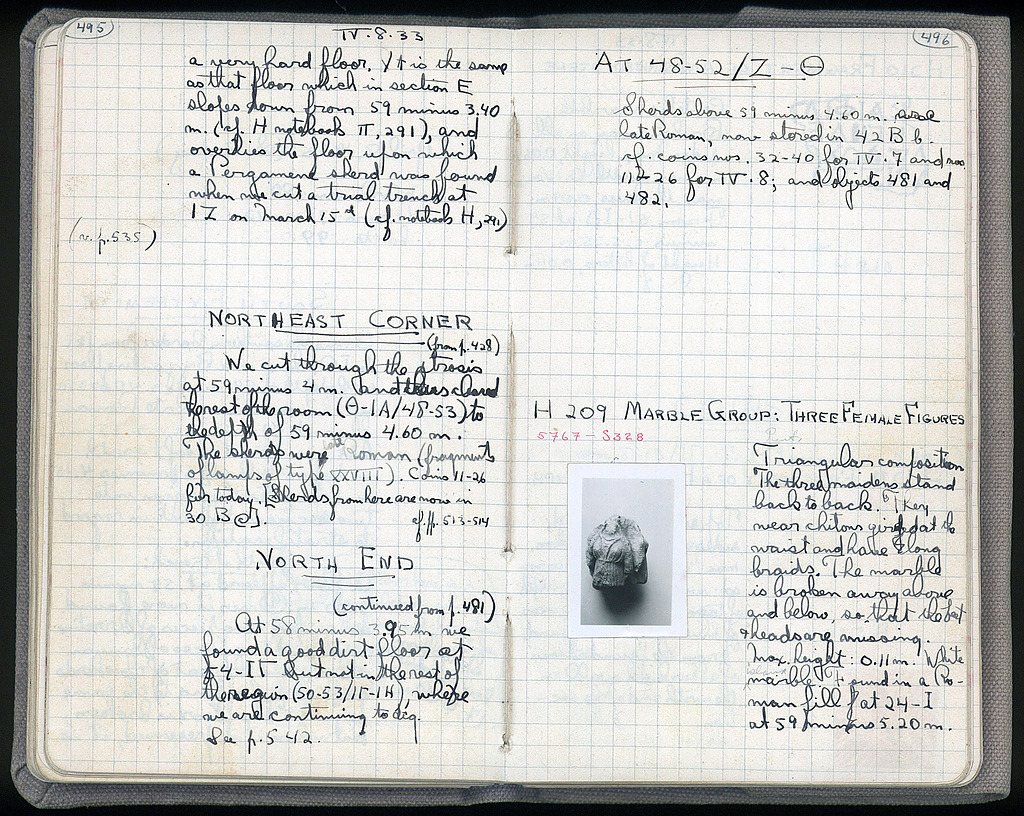 495
IV.8.33
a very hard floor. It is the same
as that floor which in section E
slopes down from 59 minus 3.40
m. (cf. H notebook II, 291), and
overlies the floor upon which
a Pergamene sherd was found
when we cut a trial trench at
IZ on March 15 (cf. notebook H, 291)
(v. p. 535)
NORTHEAST CORNER
(from p. 428)
We cut through the strosis
at 59 minus 4 m. and cleared
the rest of the room (Θ-IA/48-53) to
the depth of 59 minus 4.60 m.
The sherds were late Roman (fragments
of lamps of type XXVIII). Coins 11-26
for today. [Sherds from here are now in
30 B @].
cf. pp. 513-514
NORTH END
(continued from p. 481)
At 58 minus 3.95 m we
found a good dirt floor at
4-IΓ but not in the rest of
the region (50-53/IΓ-IH), where
we are continuing to dig.
See p. 542.
496
AT 48-52/Z-Θ
Sherds above 59 minus 4.60 m. were
late Roman, now stored in 42 B 6.
cf. coins nos. 32-40 for IV.7 and nos
11-26 for IV.8; and objects 481 and
482.
H 209 MARBLE GROUP: THREE FEMALE FIGURES
5767 - S328
Triangular composition
The three maidens stand
back to back. They
wear chitons girded at the
waist and have long
braids. The marble
is broken away above
and below, so that the feet
& heads are missing.
Max. height: 0.11 m. White
marble. Found in a Ro-
man fill at 24-I
at 59 minus 5.20 m.